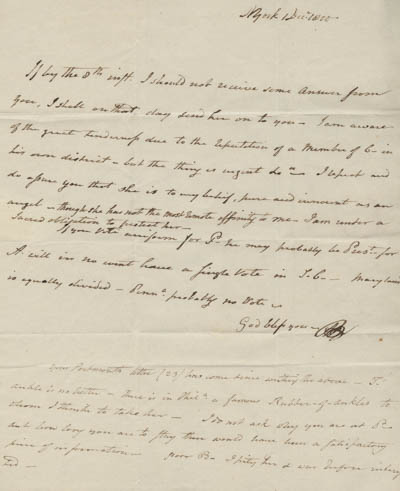 NYork 1 Dec. 1800
If by the 8th inst. I should not receive some answer from
you, I shall on that day send her on to you – I am aware
of the great tenderness due to the reputation of a Member of C – in
his own district – but the thing is urgent &c. – I repeat and
do assure you that she is to my belief, pure and innocent as an
angel – though she has not the most remote affinity to me – I am under a
Sacred obligation to protect her –
If you vote uniform for P – he may probably be Prest – for
A. will in no event have a single Vote in S. C. – Maryland
is equally divided – Pennª. probably no Vote –
God bless you –
Your Portsmouth letter (23) has come since writing the above – T.
ankle is no better – there is in Philª a famous Rubber-of-Ankles to
whom I think to take her – I do not ask why you are at P –
but how long you are to stay there would have been a satisfactory
piece of information – Poor B – I pity her &